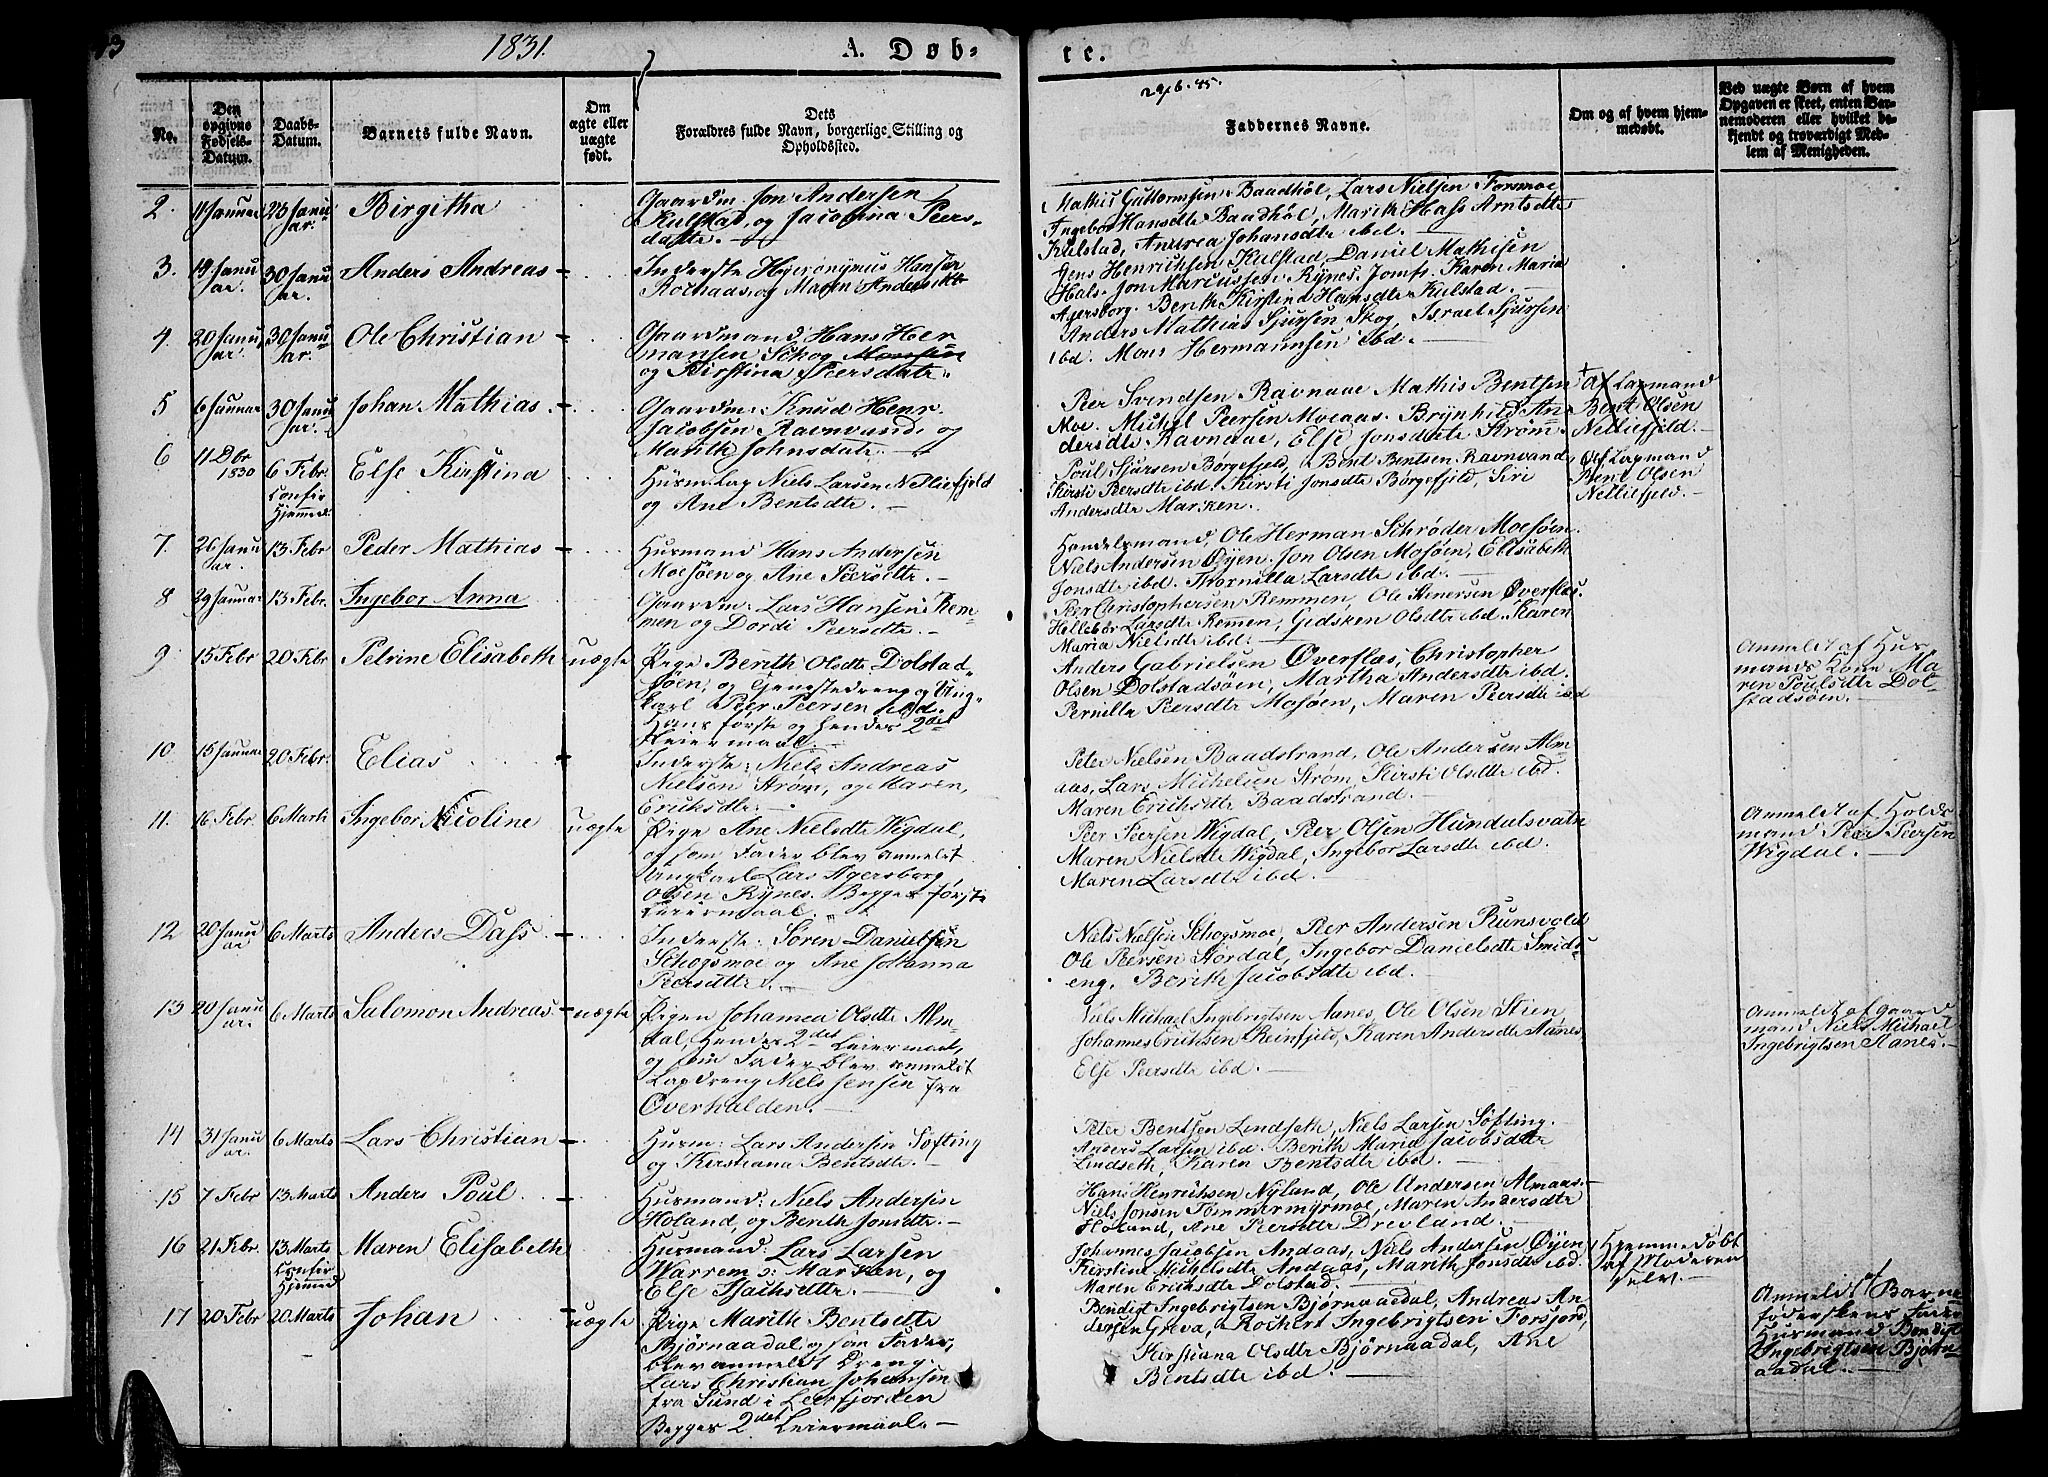 1831.
A. Døb-
te.
2 9/6. 45.
No.
Den opgivne Fødsels-Datum.
Daabs-Datum.
Barnets fulde Navn.
Om ægte eller uægte født.
Dets
Forældres fulde Navn, borgerlige Stilling og
Opholdssted.
Faddernes Navne.
Om og af hvem hjem-
medøbt.
Ved uægte Børn af hvem
Opgaven er skeet, enten Bar-
nemoderen eller hvilket be-
kjendt og troværdigt Med-
lem af Menigheden.
2. 11 Januar 23 Janu
ar. Birgitha
Gaardm: Jon Andersen
Kulstad, og Jacobina Peers-
datte. —
Mathis Guttormsen Baadhøl, Lars Nielsen Forsmoe
Ingebor Hansdtr Baadhøl, Marith Hass Arntsdtr
Kulstad, Andrea Johansdtr ibd. —
3. 19 Janu
ar. 30 Janu
ar. Anders Andreas —
Inderste Hyeronymus Hansen
Rochaas, og Maren Andersdtr
Jens Henriksen Kulstad, Daniel Mathisen
Hals. Jon Marcussen Rynes. Jomfr. Karen Maria
Agersborg. Berith Kirstina Hansdtr Kulstad. —
4 20 Janu
ar. 30 Janu
ar. Ole Christian —
Gaardmand Hans Her-
mansen Schog
og Kirstina Peersdatr.
Anders Mathias Sjursen Skog, Israel Sjursen
ibd. Mons Hermannsen ibd. —
5 6 Januar 30 Janu
ar. Johan Mathias. —
Gaardm: Knud Henr.
Jacobsen Ravnvand og
Marith Johnsdatr. —
Peer Svendsen Ravnaae Mathis Bentsen
Moe. Michel Peersen Moeaas. Brynhild An-
dersdtr Ravnaae, Else Jonsdatr Strøm. —
+ Af Lapmand
Bent Olsen
Nelliefjeld. —
6 11 Dbr
1830 6 Febr.
Confir
Hjemmed: Else Kirstina
Husm. Lap Niels Larsen Nelliefjeld
og Ane Bentsdtr. —
Poul Sjursen Børgefjeld, Bent Bentsen Ravnvand,
Kirsti Peersdtr ibd. Kirsti Jonsdtr Børgefjeld, Siri
Andersdtr Marken. —
Af Lapmand
Bent Olsen
Nelliefjeld. —
7. 26 Janu
ar. 13 Febr Peder Mathias —
Husmand Hans Andersen
Moesøen og Ane Peersdtr. —
Handelsmand, Ole Herman Schrøder Moesøen.
Niels Andersen Øyen. Jon Olsen Mosøen, Elisabeth
Jonsdtr ibd. Thornilla Larsdtr ibd. —
8 29 Januar 13 Febr. Ingebor Anna
Gaardm: Lars Hansen Rem-
men og Dordi Peersdtr. —
Peer Christophersen Remmen, Ole Einersen Øverflæs.
Hellebor Larsdtr Remen, Gidsken Olsdtr ibd. Karen
Maria Nielsdtr ibd. —
9 15 Febr 20 Febr Petrine Elisabeth uægte
Pige Berith Olsdtr Dolstad-
søen, og Tjenestedreng og Ung-
karl Peer Peersen ibd.
Hans første og hendes 2det
Leiermaal. —
Anders Gabrielsen Øverflæs, Christopher
Olsen Dolstadsøen, Martha Andersdtr ibd.
Pernilla Peersdtr Mosøen, Maren Peersdtr ibd
Anmeldt af Hus
mands Kone Ma
ren Poulsdtr Dol-
stadsøen. —
10 15 Januar 20 Febr. Elias —
Inderste: Niels Andreas
Nielsen Strøm, og Maren
Eriksdtr. —
Peter Nielsen Baadstrand. Ole Andersen Alm-
aas, Lars Michelsen Strøm, Kirsti Olsdtr ibd.
Maren Eriksdtr Baadstrand. —
11. 16 Febr. 6 Marts Ingebor Nicoline uægte
Pige Ane Nielsdtr Wigdal,
og som Fader blev anmeldt
Ungkarl Lars Agersborg
Olsen Rynes. Begges første
Leiermaal. —
Peer Peersen Wigdal, Peer Olsen Hundalsvatn
Maren Nielsdtr Wigdal, Ingebor Larsdtr ibd.
Maren Larsdtr ibd. —
Anmeldt af Holds
mand Peer Peersen
Wigdal. —
12 20 Janu
ar 6 Marts Anders Dass —
Inderste: Søren Danielsen
Schogsmoe og Ane Johanna
Peersdtr. —
Niels Nielsen Schogsmoe, Peer Andersen Runsvold
Ole Peersen Stordal, Ingebor Danielsdtr Smids-
eng, Berith Jacobsdtr ibd. —
13 20 Janu
ar. 6 Marts Salomon Andreas — uægte
Pigen Johanna Olsdtr Alm-
dal, Hendes 2det Leiermaal,
og som Fader blev anmeldt
Lapdreng Niels Jensen fra
Overhalden. —
Niels Michael Ingebrigtsen Aanes, Ole Olsen Stien,
Johannes Erichsen Reinfjeld, Karen Andersdtr Aanes,
Else Peersdtr ibd. —
Anmeldt af Gaard
mand Niels Michael
Ingebrigtsen Aanes. —
14 31 Janu
ar. 6 Marts Lars Christian —
Husm: Lars Andersen Søfting
og Kerstiana Bentsdtr. —
Peter Bentsen Lindseth, Niels Larsen Søfting.
Anders Larsen ibd. Berith Maria Jacobsdtr
Lindseth, Karen Bentsdtr ibd. —
15 7 Febr 13 Marts Anders Poul —
Husmand: Niels Andersen
Holand, og Berith Jonsdtr. —
Hans Henrichsen Nyland, Ole Andersen Almaas.
Niels Jonsen Tømmermyrmoe, Maren Andersdtr
Holand, Ane Peersdtr Drevland. —
16 21 Febr. 13 Marts
Confir
Hjemmed Maren Elisabeth
Husmand: Lars Larsen
Warrem o: Marken, og
Else Isachsdtr. —
Johannes Jacobsen Andaas, Niels Andersen Øyen,
Kirstine Michelsdtr Andaas, Marith Jonsdtr ibd.
Maren Eriksdtr Dolstad. —
Hjemmedøbt
af Moderen
selv. —
17 20 Febr 20 Marts Johan uægte
Pige Marith Bentsdtr
Bjørnaadal og som Fader
blev anmeldt Dreng
Lars Christian Johansen
fra Sund i Leerfjorden
Begges 2det Leiermaal. —
Bendigt Ingebrigtsen Bjørnaadal, Andreas An
dersen Greva, Rochert Ingebrigtsen Forsjord,
Kirstiana Olsdtr Bjørnaadal, Ane
Bentsdtr ibd. —
Anmeldt af Barne
føderskens Fader
Husmand Bendigt
Ingebrigtsen Bjørn-
aadal. —